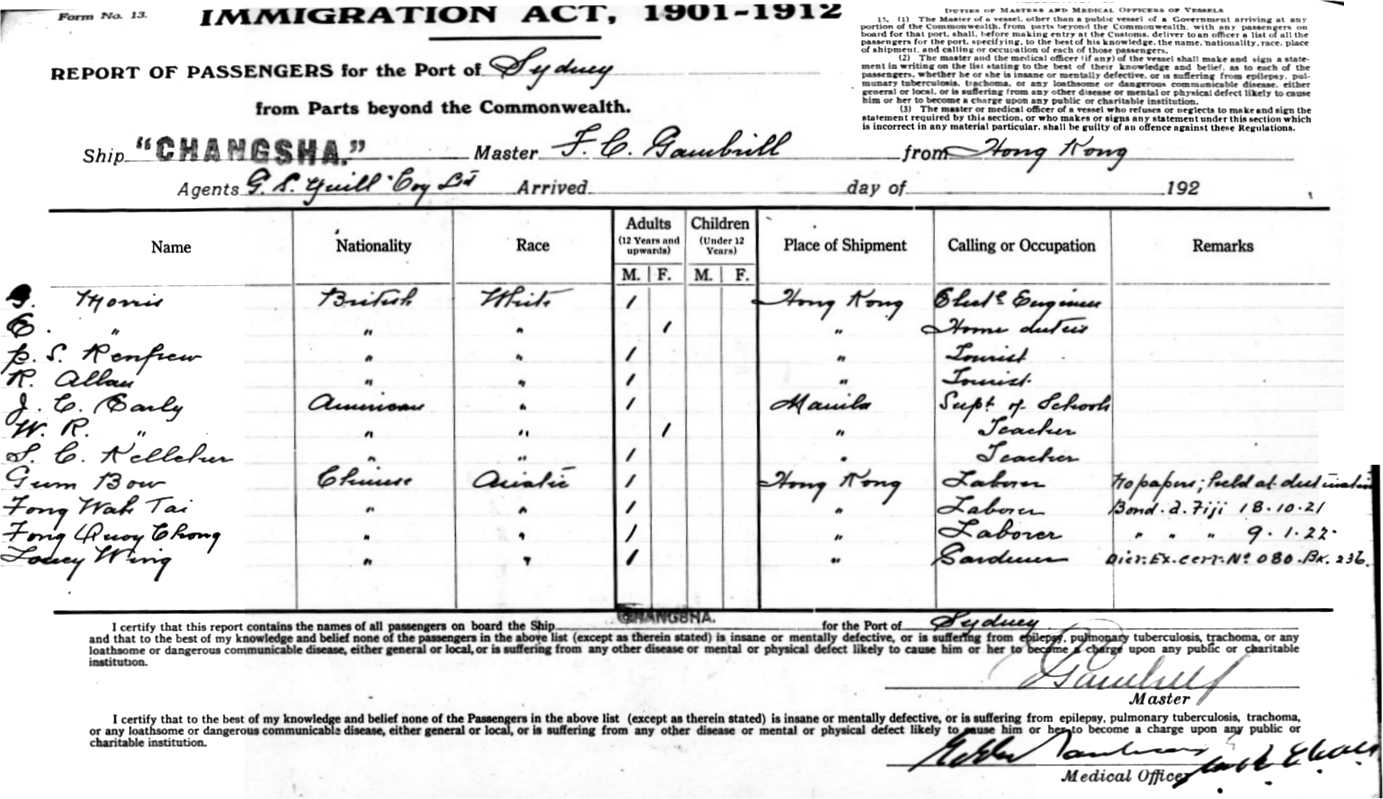 Form No. 13.
IMMIGRATION ACT, 1901-1912
REPORT OF PASSENGERS for the Port of Sydney
from Parts beyond the Commonwealth.
DUTIES OF MASTERS AND MEDICAL OFFICERS OF VESSELS
15. (1) The Master of a vessel, other than a public vessel of a Government arriving at any
portion of the Commonwealth, from parts beyond the Commonwealth, with any passengers on
board for that port, shall, before making entry at the Customs, deliver to an officer a list of all the
passengers for the port, specifying, to the best of his knowledge, the name, nationality, race, place
of shipment, and calling or occupation of each of those passengers.
(2) The master and the medical officer (if any) of the vessel shall make and sign a state-
ment in writing on the list stating to the best of their knowledge and belief, as to each of the
passengers, whether he or she is insane or mentally defective, or is suffering from epilepsy, pul-
munary tuberculosis, trachoma, or any loathsome or dangerous communicable disease, either
general or local, or is suffering from any other disease or mental or physical defect likely to cause
him or her to become a charge upon any public or charitable institution.
(3) The master or medical officer of a vessel who refuses or neglects to make and sign the
statement required by this section, or who makes or signs any statement under this section which
is incorrect in any material particular, shall be guilty of an offence against these Regulations.
Ship "CHANGSHA." Master F. C. Gambrill from Hong Kong
Agents G. S. Yuill Coy Ltd Arrived day of 192
Name Nationality Race Adults (12 Years and upwards) M. F. Children (Under 12 Years) M. F. Place of Shipment Calling or Occupation Remarks
Morris British White 1 Hong Kong Elect. Engineer
E. " " " 1 " Home duties
S. Renfrew " " 1 " Tourist
R. Allan " " 1 " Tourist
J. C. Early American " 1 Manila Supt of Schools
W. R. " " " 1 " Teacher
S. C. Kelleher " " 1 " Teacher
Gum Bow Chinese Asiatic 1 Hong Kong Laborer No papers; held at destination
Fong Wah Tai " " 1 " Laborer Bond. d. Fiji 18.10.21
Fong Quoy Chong " " 1 " Laborer " " " 9.1.22.
Wing " " 1 " Gardener Dict. Ex. cert. No 080. Bk. 236.
I certify that this report contains the names of all passengers on board the Ship CHANGSHA. for the Port of Sydney
and that to the best of my knowledge and belief none of the passengers in the above list (except as therein stated) is insane or mentally defective, or is suffering from epilepsy, pulmonary tuberculosis, trachoma, or any
loathsome or dangerous communicable disease, either general or local, or is suffering from any other disease or mental or physical defect likely to cause him or her to become a charge upon any public or charitable
institution.
Gambrill
Master
I certify that to the best of my knowledge and belief none of the Passengers in the above list (except as therein stated) is insane or mentally defective, or is suffering from epilepsy, pulmonary tuberculosis, trachoma,
or any loathsome or dangerous communicable disease, either general or local, or is suffering from any other disease or mental or physical defect likely to cause him or her to become a charge upon any public or
charitable institution.
Medical Officer